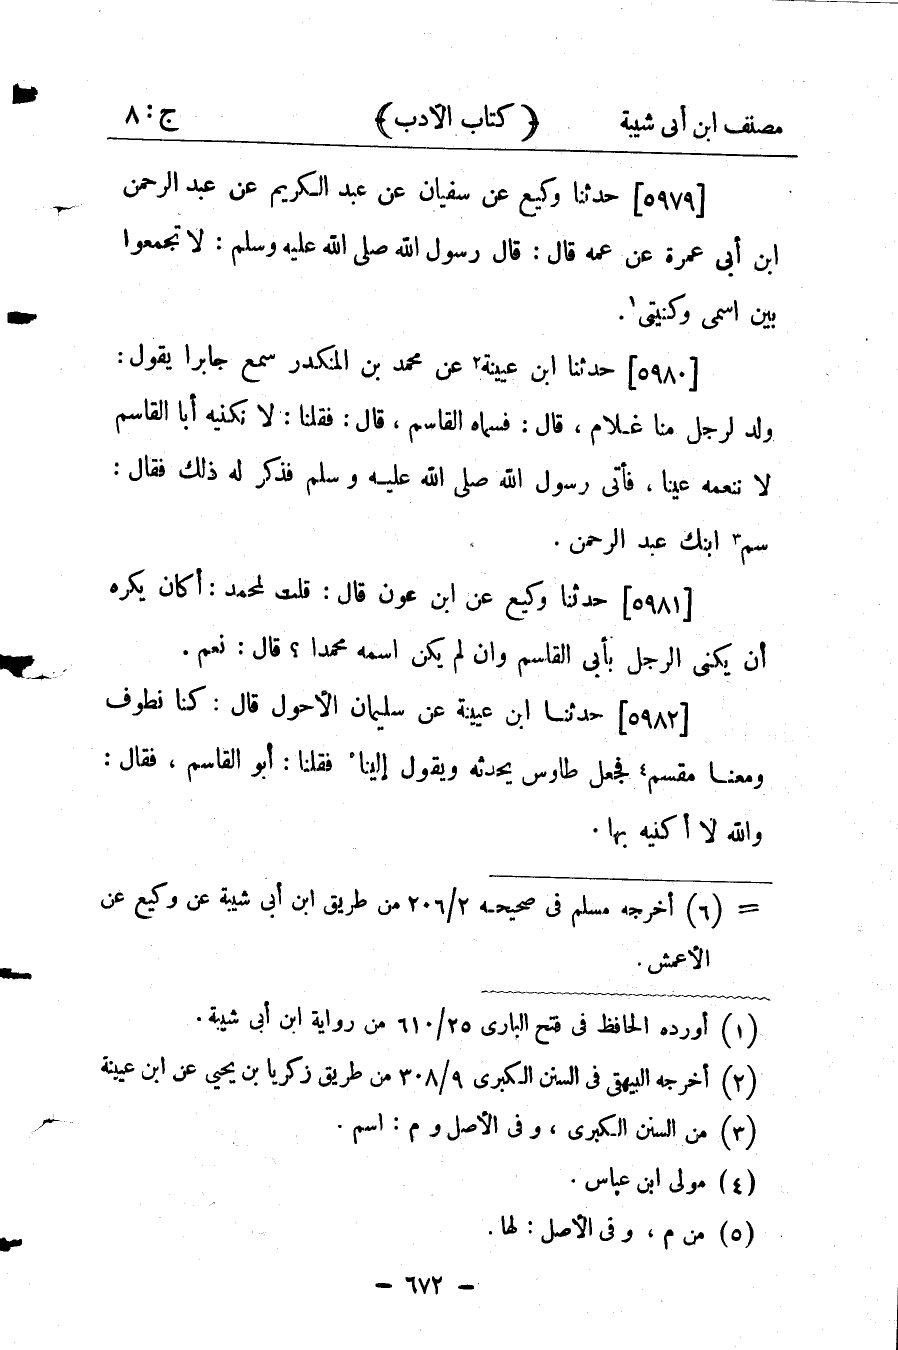 مصنف ابن أبى شيبة ﴿ كتاب الأدب ﴾ ج : ٨
[٥٩٧٩] حدثنا وكيع عن سفيان عن عبد الكريم عن عبد الرحمن
ابن أبى عمرة عن عمه قال : قال رسول الله صلى الله عليه وسلم : لا تجمعوا
بين اسمى وكنيتى١ .
[٥٩٨٠] حدثنا ابن عيينة٢ عن محمد بن المنكدر سمع جابرا يقول :
ولد لرجل منا غلام ، قال : فسماه القاسم ، قال : فقلنا : لا نكنيه أبا القاسم
لا ننعمه عينا ، فأتى رسول الله صلى الله عليه و سلم فذكر له ذلك فقال :
سم٣ ابنك عبد الرحمن .
[٥٩٨١] حدثنا وكيع عن ابن عون قال : قلت لمحمد : أكان يكره
أن يكنى الرجل بأبى القاسم وان لم يكن اسمه محمدا ؟ قال : نعم .
[٥٩٨٢] حدثنا ابن عيينة عن سليمان الأحول قال : كنا نطوف
ومعنا مقسم٤ فجعل طاوس يحدثه ويقول إلينا٥ فقلنا : أبو القاسم ، فقال :
والله لا أكنيه بها .
= (٦) أخرجه مسلم فى صحيحه ٢٠٦/٢ من طريق ابن أبى شيبة عن وكيع عن
الأعمش .
(١) أورده الحافظ فى فتح البارى ٦١٠/٢٥ من رواية ابن أبى شيبة .
(٢) أخرجه البيهقى فى السنن الكبرى ٣٠٨/٩ من طريق زكريا بن يحيى عن ابن عيينة
(٣) من السنن الكبرى ، و فى الأصل و م : اسم .
(٤) مولى ابن عباس .
(٥) من م ، و فى الأصل : لها .
– ٦٧٢ –